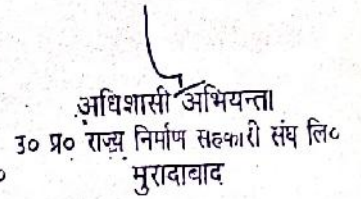 अधिशासी अभियन्ता
उ० प्र० राज्य निर्माण सहकारी संघ लि०
मुरादाबाद